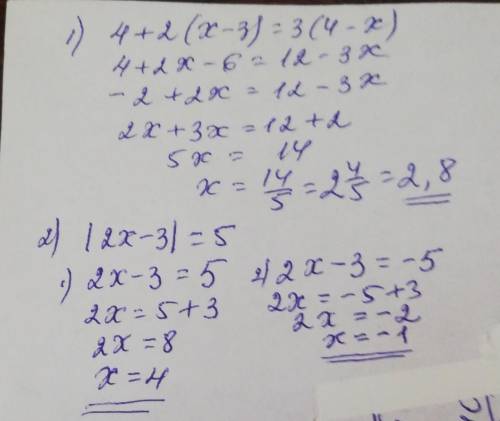 1) 4+2(x-3)=3(4-x)
4+2x-6=12-3x
-2+2x=12-3x
2x+3x=12+2
5x= 14
x=14/5=2 4/5=2,8
2) |2x-3|=5
1) 2x-3=5
2x=5+3
2x=8
x=4
2) 2x-3=-5
2x=-5+3
2x=-2
x=-1